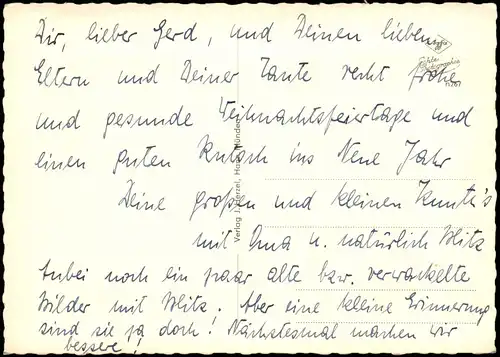 Dir, lieber Gerd, und Deinen lieben
Eltern und Deiner Tante recht frohe
und gesunde Weihnachtsfeiertage und
einen guten Rutsch ins Neue Jahr
Deine großen und kleinen
mit Oma u. natürlich Blitz
Anbei noch ein paar alte bzw. verwackelte
Bilder mit Blitz. Aber eine kleine Erinnerung
sind sie ja doch! Nächstesmal machen wir
bessere!
Verlag
Echte